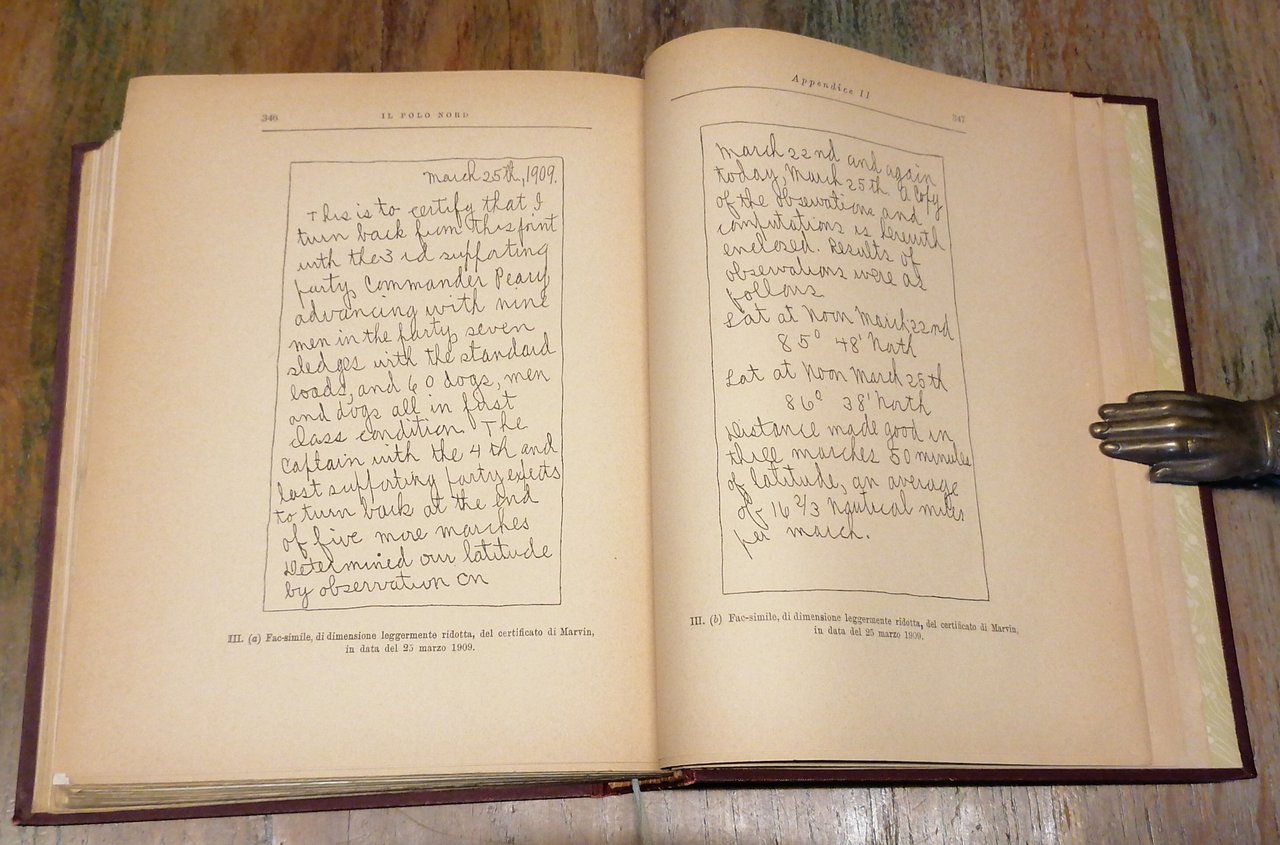 346
IL POLO NORD
March 25th, 1909.
This is to certify that I
turn back from this point
with the 3 rd supporting
party, Commander Peary
advancing with nine
men in the party seven
sledges with the standard
loads, and 60 dogs, men
and dogs all in first
class condition The
Captain with the 4 th and
last supporting party expects
to turn back at the end
of five more marches
Determined our latitude
by observation on
III. (a) Fac-simile, di dimensione leggermente ridotta, del certificato di Marvin,
in data del 25 marzo 1909.
Appendice II
347
March 22nd and again
today, March 25th. A copy
of the observations and
computations is herewith
enclosed. Results of
observations were as
follows.
Lat at Noon March 22nd
85° 48' North
Lat at Noon March 25th
86° 38' North
Distance made good in
three marches 50 minutes
of latitude, an average
of 16 2/3 nautical miles
per march.
III. (b) Fac-simile, di dimensione leggermente ridotta, del certificato di Marvin,
in data del 25 marzo 1909.